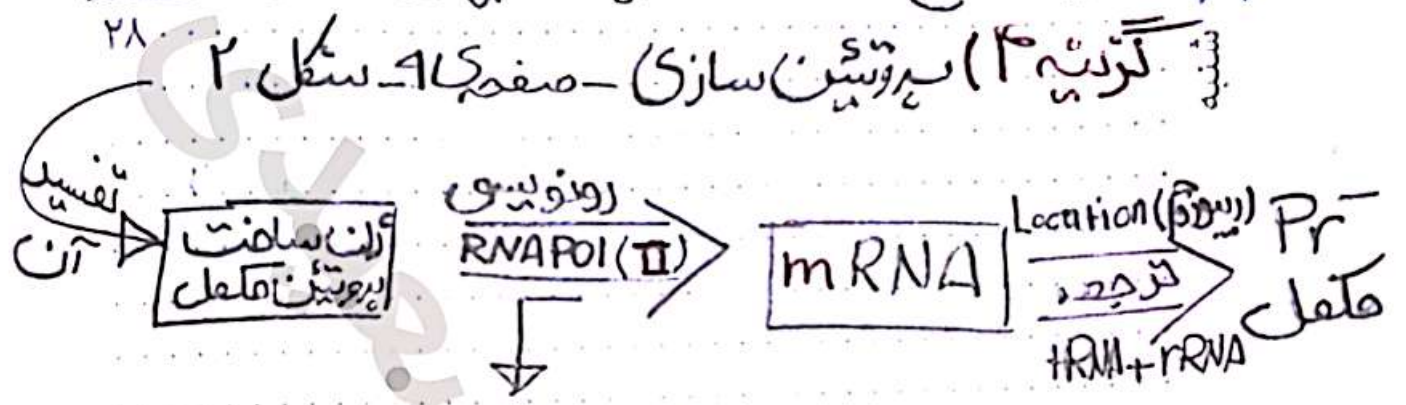 ۲۸
گزینه ۴) پروتئین سازی - صفحه‌ی ۹ - شکل ۲
تفسیر آن
ژن ساخت پروتئین مکمل
رونویسی
RNAPOl (II)
mRNA
Location (ریبوزوم)
ترجمه
tRNA + rRNA
Pr مکمل